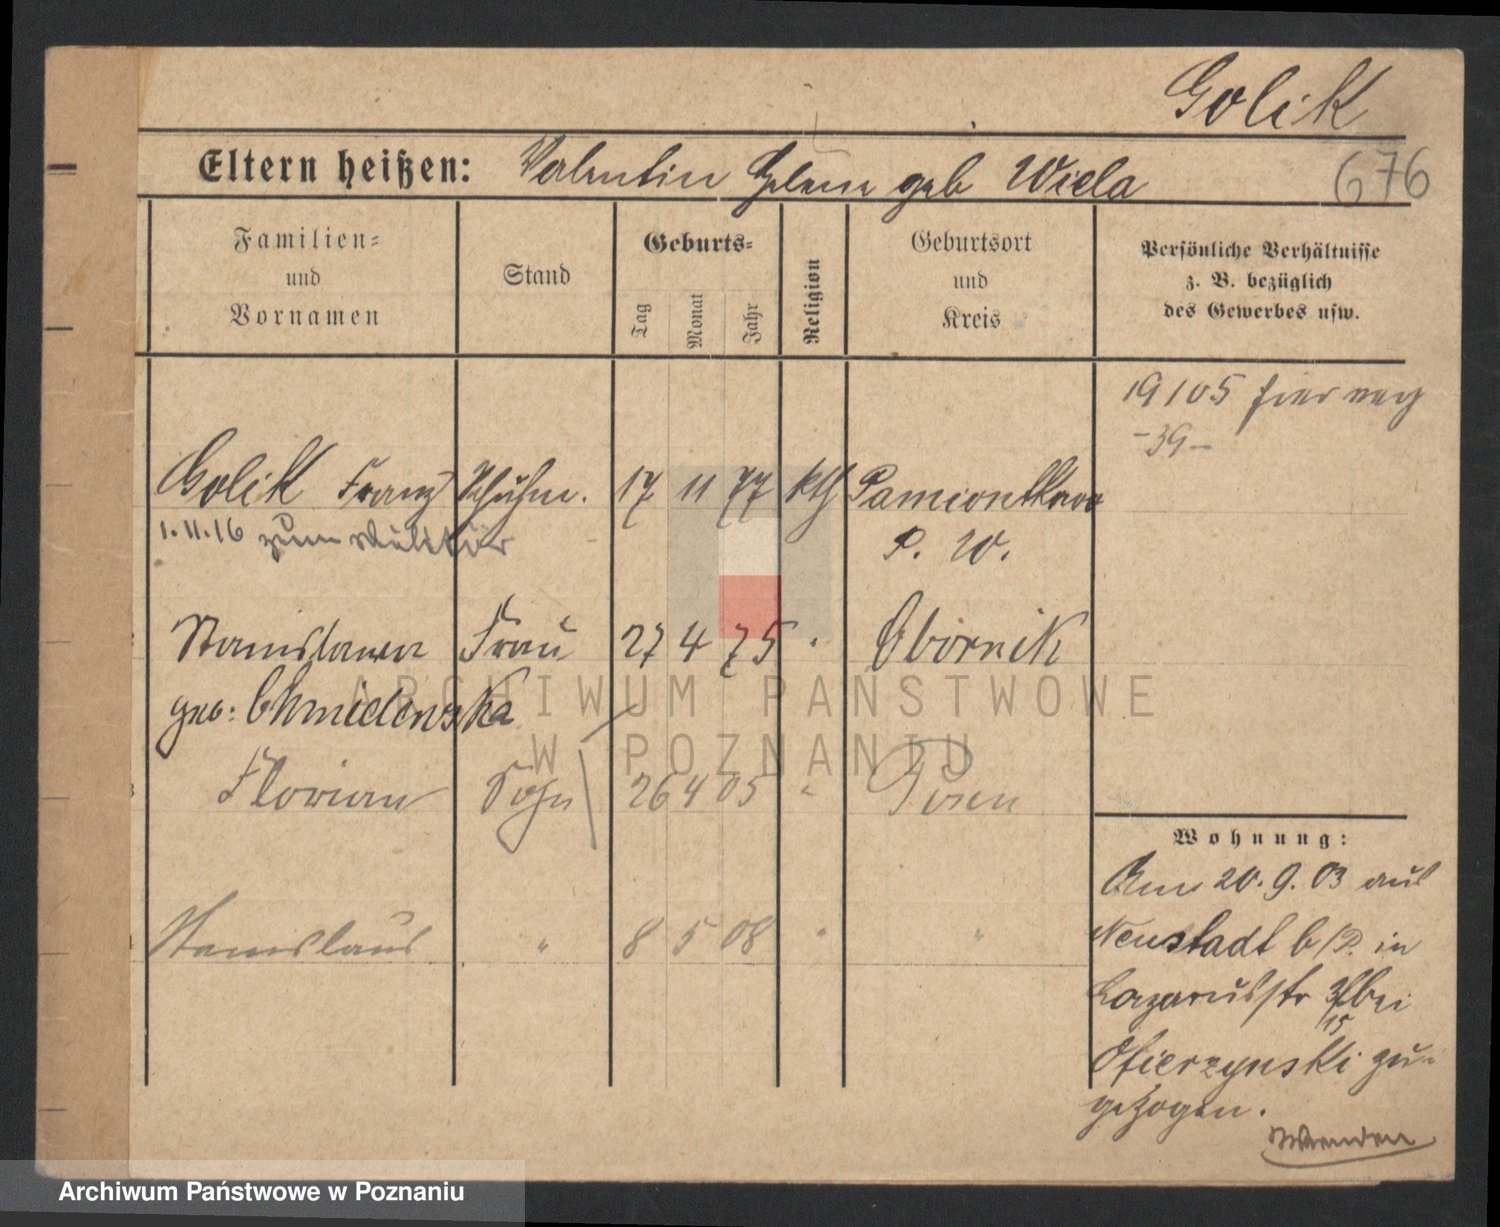 Golik
Eltern heißen: Valentin Helene geb Wiela
676
Familien-
und
Vornamen
Stand
Geburts-
Tag
Monat
Jahr
Religion
Geburtsort
und
Kreis
Persönliche Verhältnisse
z. B. bezüglich
des Gewerbes usw.
19105
-39-
Golik Franz Schuhm. 17 11 77 kth Pamiontkowo
P. W.
1.11.16 zum Militär
Stanislawa Frau 27 4 75 " Obornik
geb: Chmielewska
Florian Sohn 26 4 05 " Posen
Stanislaus " 8 5 08 " "
Wohnung:
Am 20.9.03 aus
Neustadt b/P. in
Lazarusstr bei
Ofierzynski zu-
gezogen.
Wenden
ARCHIWUM PAŃSTWOWE
W POZNANIU
Archiwum Państwowe w Poznaniu